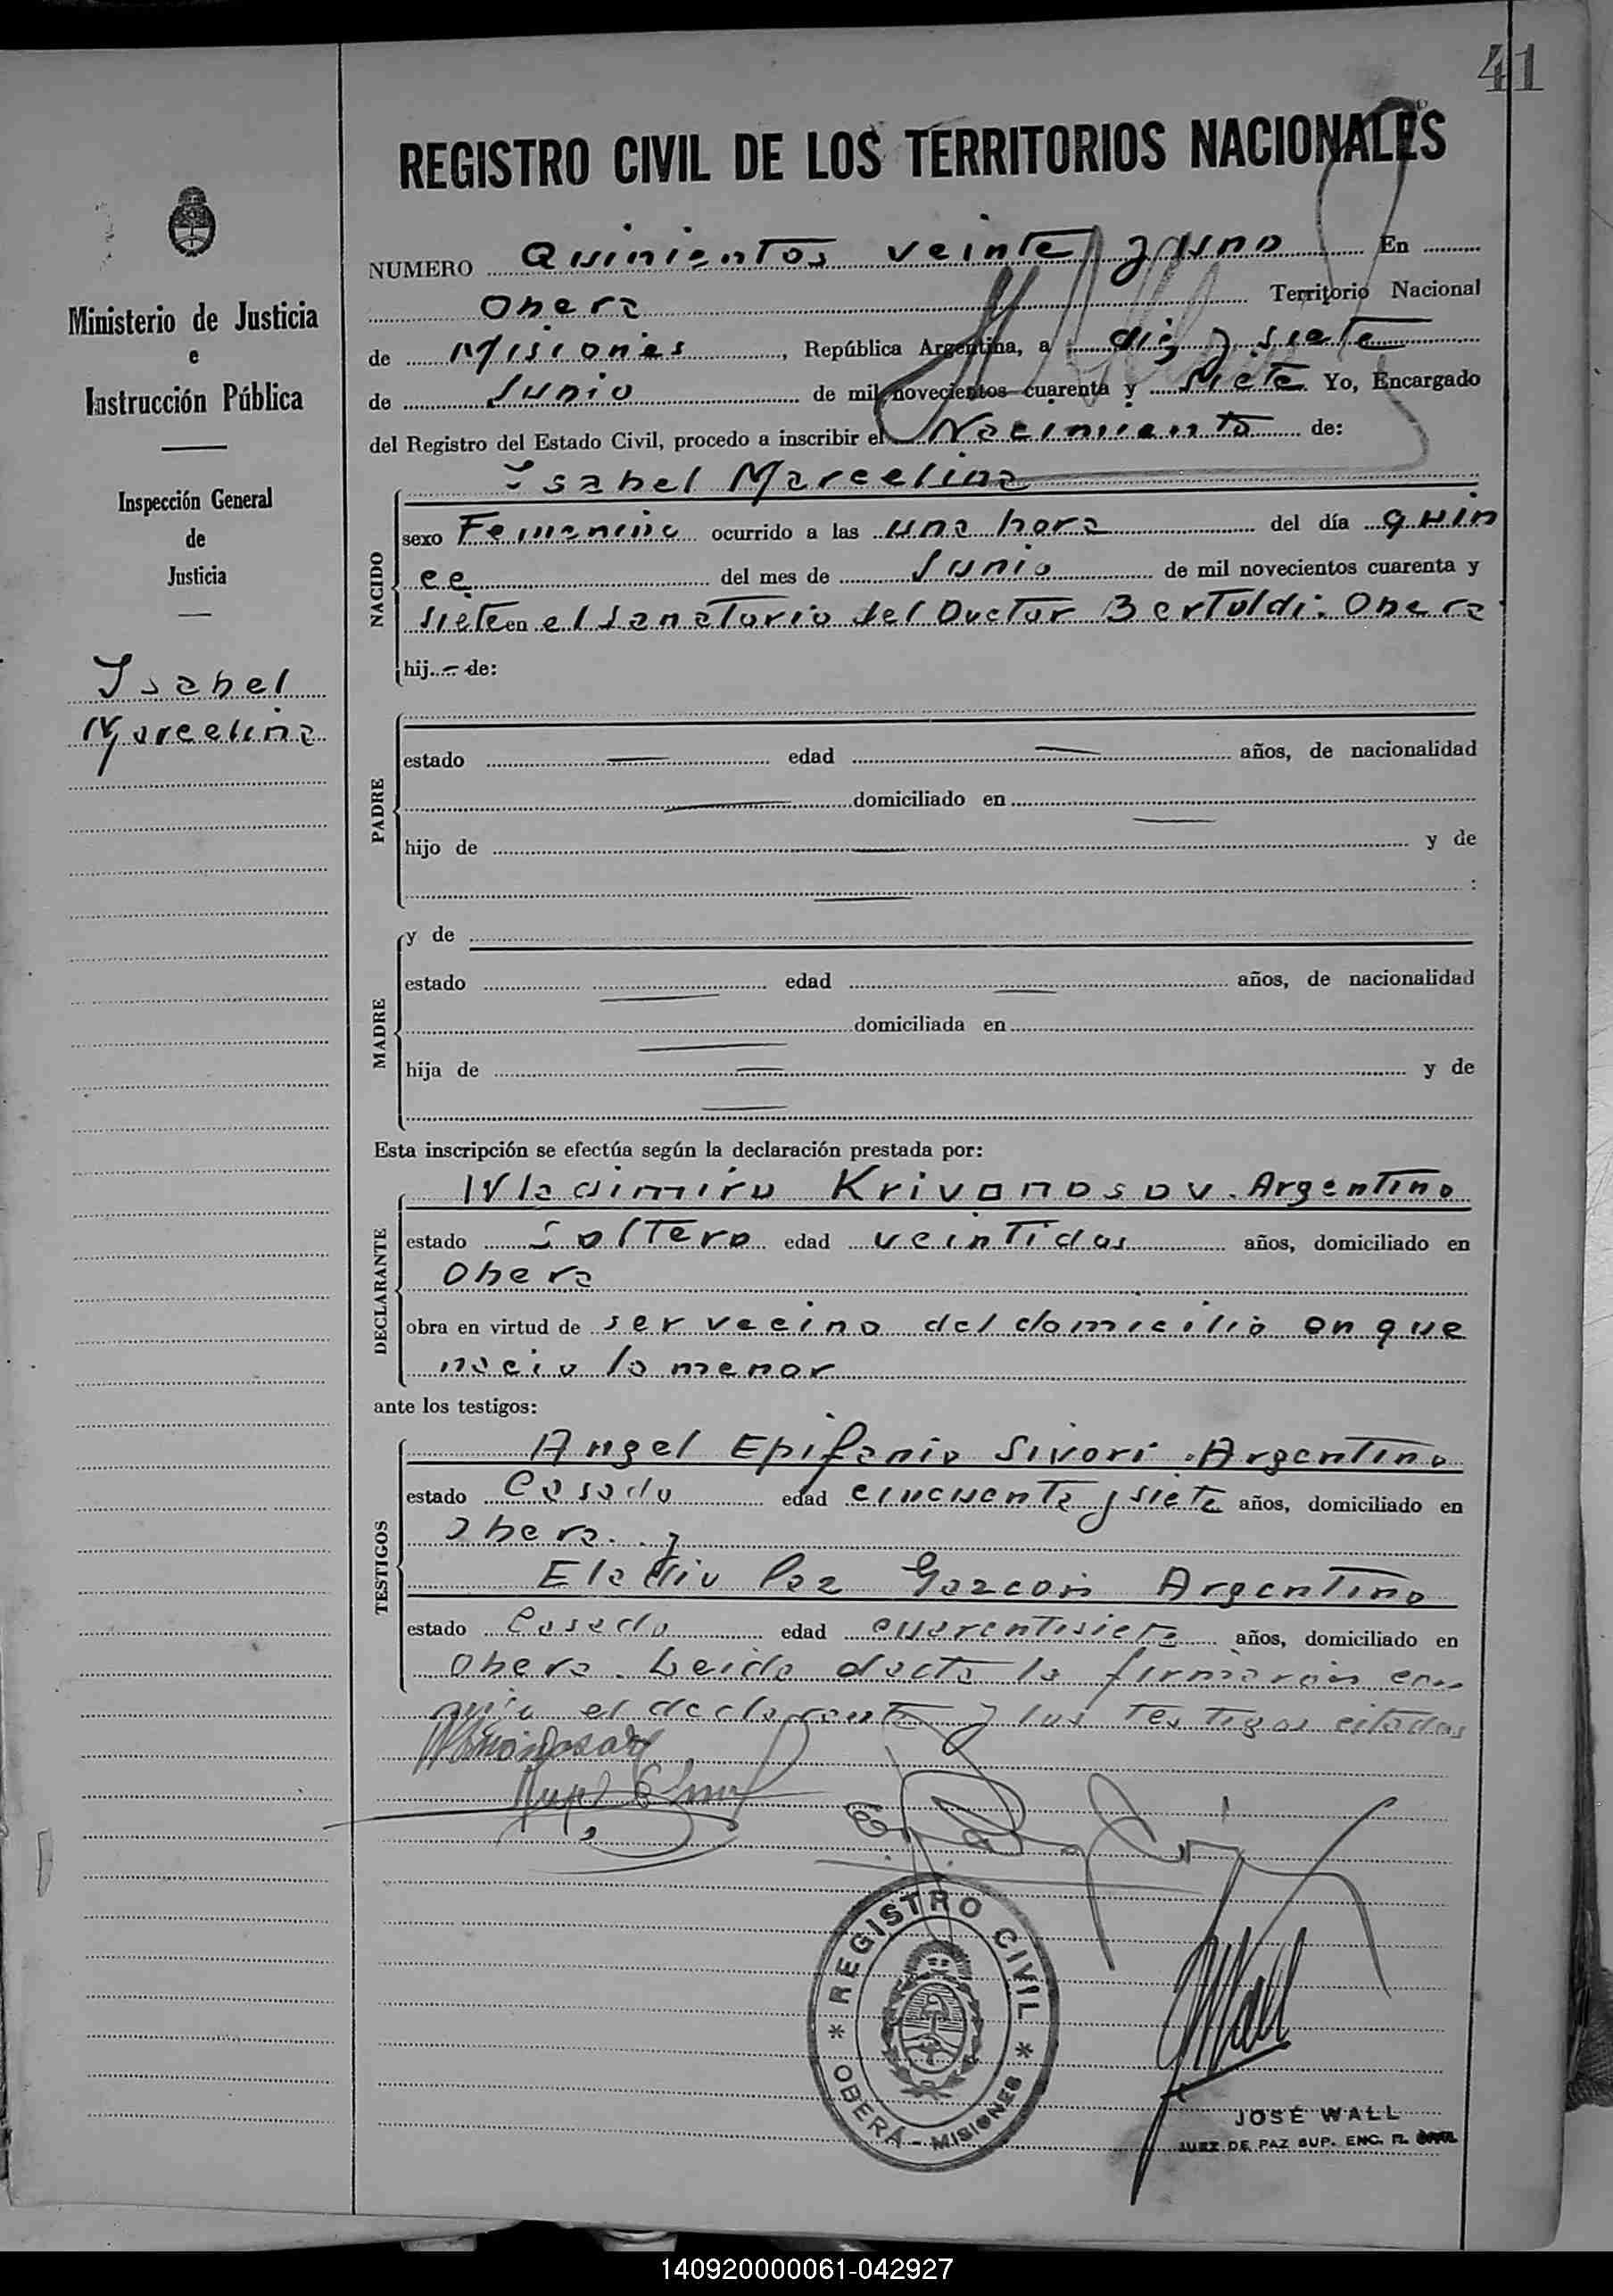 41
REGISTRO CIVIL DE LOS TERRITORIOS NACIONALES
NUMERO Quinientos veinte y uno En
Obera Territorio Nacional
de Misiones, República Argentina, a diez y siete
de Junio de mil novecientos cuarenta y siete Yo, Encargado
del Registro del Estado Civil, procedo a inscribir el Nacimiento de:
Ministerio de Justicia
e
Instrucción Pública
Inspección General
de
Justicia
Isabel
Marcelina
NACIDO
Isabel Marcelina
sexo Femenino ocurrido a las una hora del día quin
ce del mes de Junio de mil novecientos cuarenta y
siete en el Sanatorio del Doctor Bertoldi. Obera
hij.- de:
PADRE
estado edad años, de nacionalidad
domiciliado en
hijo de y de
:
MADRE
y de
estado edad años, de nacionalidad
domiciliada en
hija de y de
Esta inscripción se efectúa según la declaración prestada por:
DECLARANTE
Wladimiro Krivonosov. Argentino
estado Soltero edad veintidos años, domiciliado en
Obera
obra en virtud de ser vecino del domicilio en que
nacio la menor
ante los testigos:
TESTIGOS
Angel Epifanio Sivori. Argentino
estado Casado edad cincuenta y siete años, domiciliado en
Obera. y
Eladio Paz Garzon Argentino
estado Casado edad cuarentisiete años, domiciliado en
Obera. Leida el acta la firmaron con
migo el declarante y los testigos citados
REGISTRO CIVIL
* OBERÁ - MISIONES *
JWall
JOSÉ WALL
JUEZ DE PAZ SUP. ENC. R. CIVIL
140920000061-042927